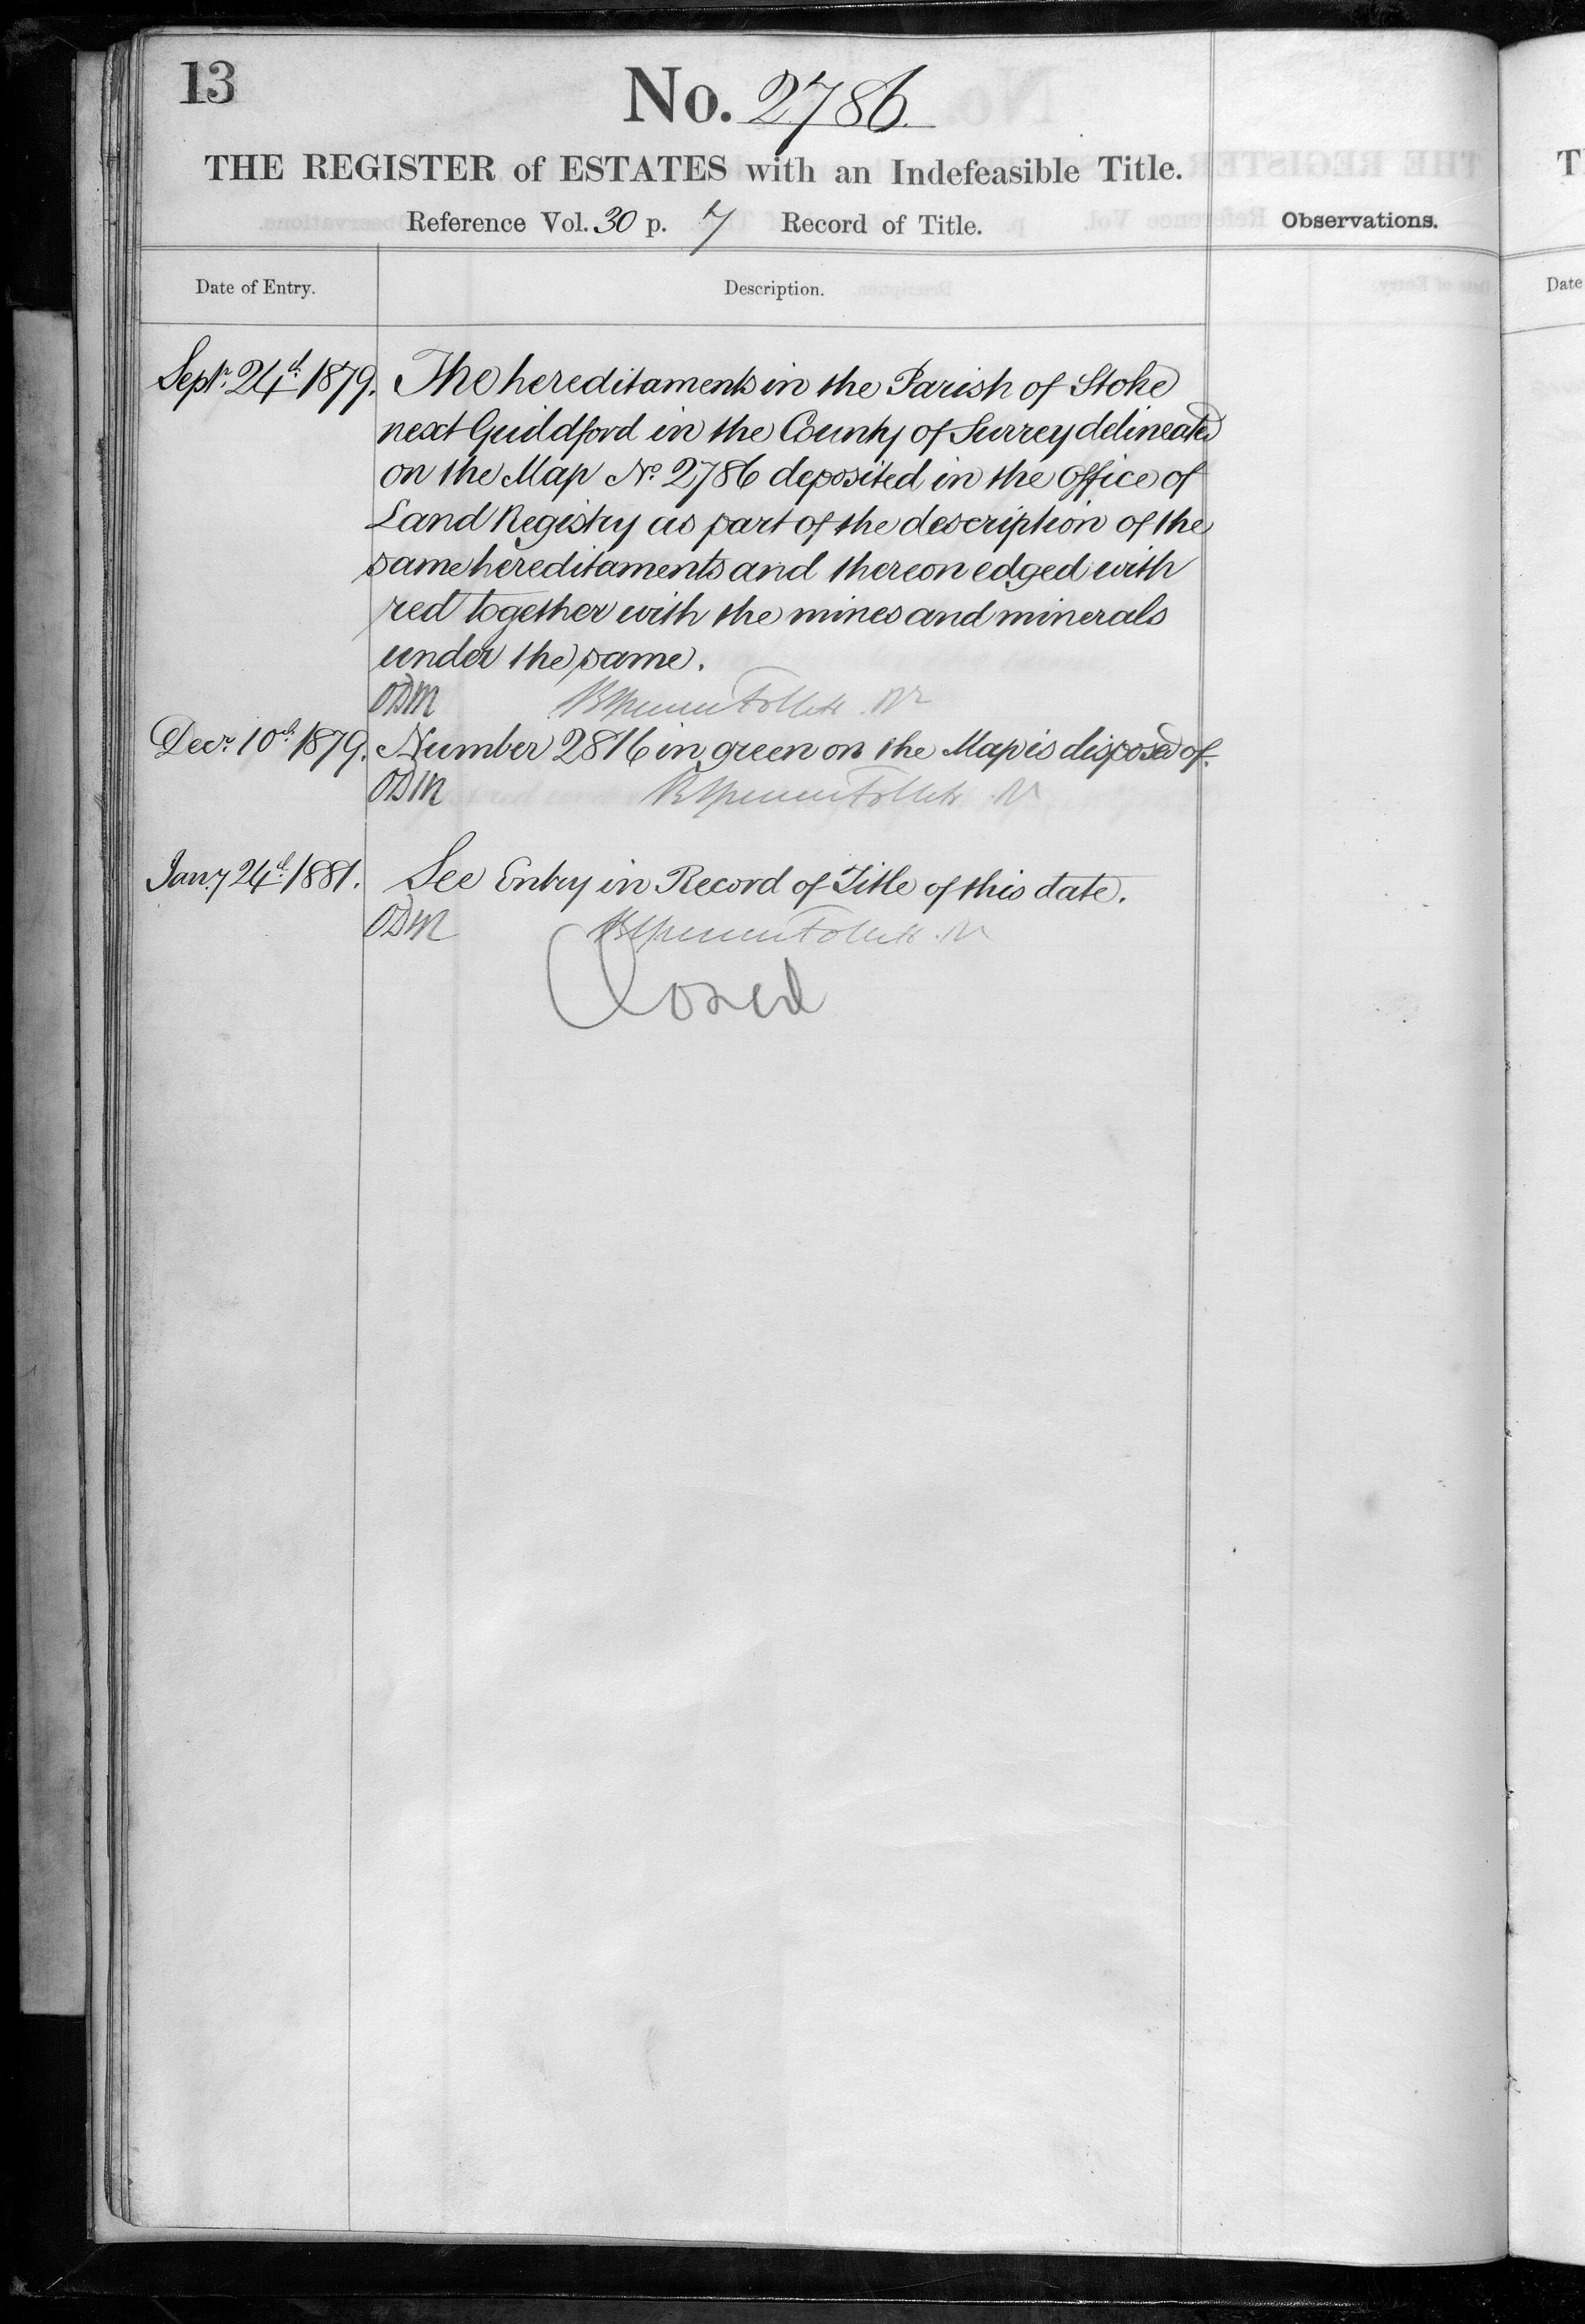 13
No. 2786.
THE REGISTER of ESTATES with an Indefeasible Title.
Reference Vol. 30 p. 7 Record of Title.
Observations.
Date of Entry.
Description.
Date
Septr. 24th 1879. The hereditaments in the Parish of Stoke
next Guildford in the County of Surrey delineated
on the Map No. 2786 deposited in the Office of
Land Registry as part of the description of the
same hereditaments and thereon edged with
red together with the mines and minerals
under the same.
ODM
Decr. 10th 1879. Number 2816 in green on the Map is disposed of.
ODM
Jany 24th 1881. See Entry in Record of Title of this date.
ODM
Closed